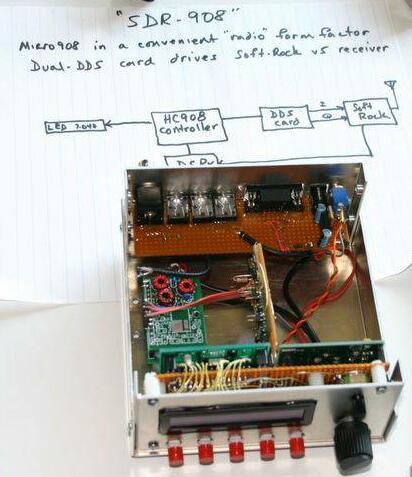 "SDR-908"
Micro908 in a convenient "radio" form factor
Dual-DDS card drives Soft-Rock v5 receiver
LED 7.040
HC908 controller
DDS card
I
Q
Soft Rock